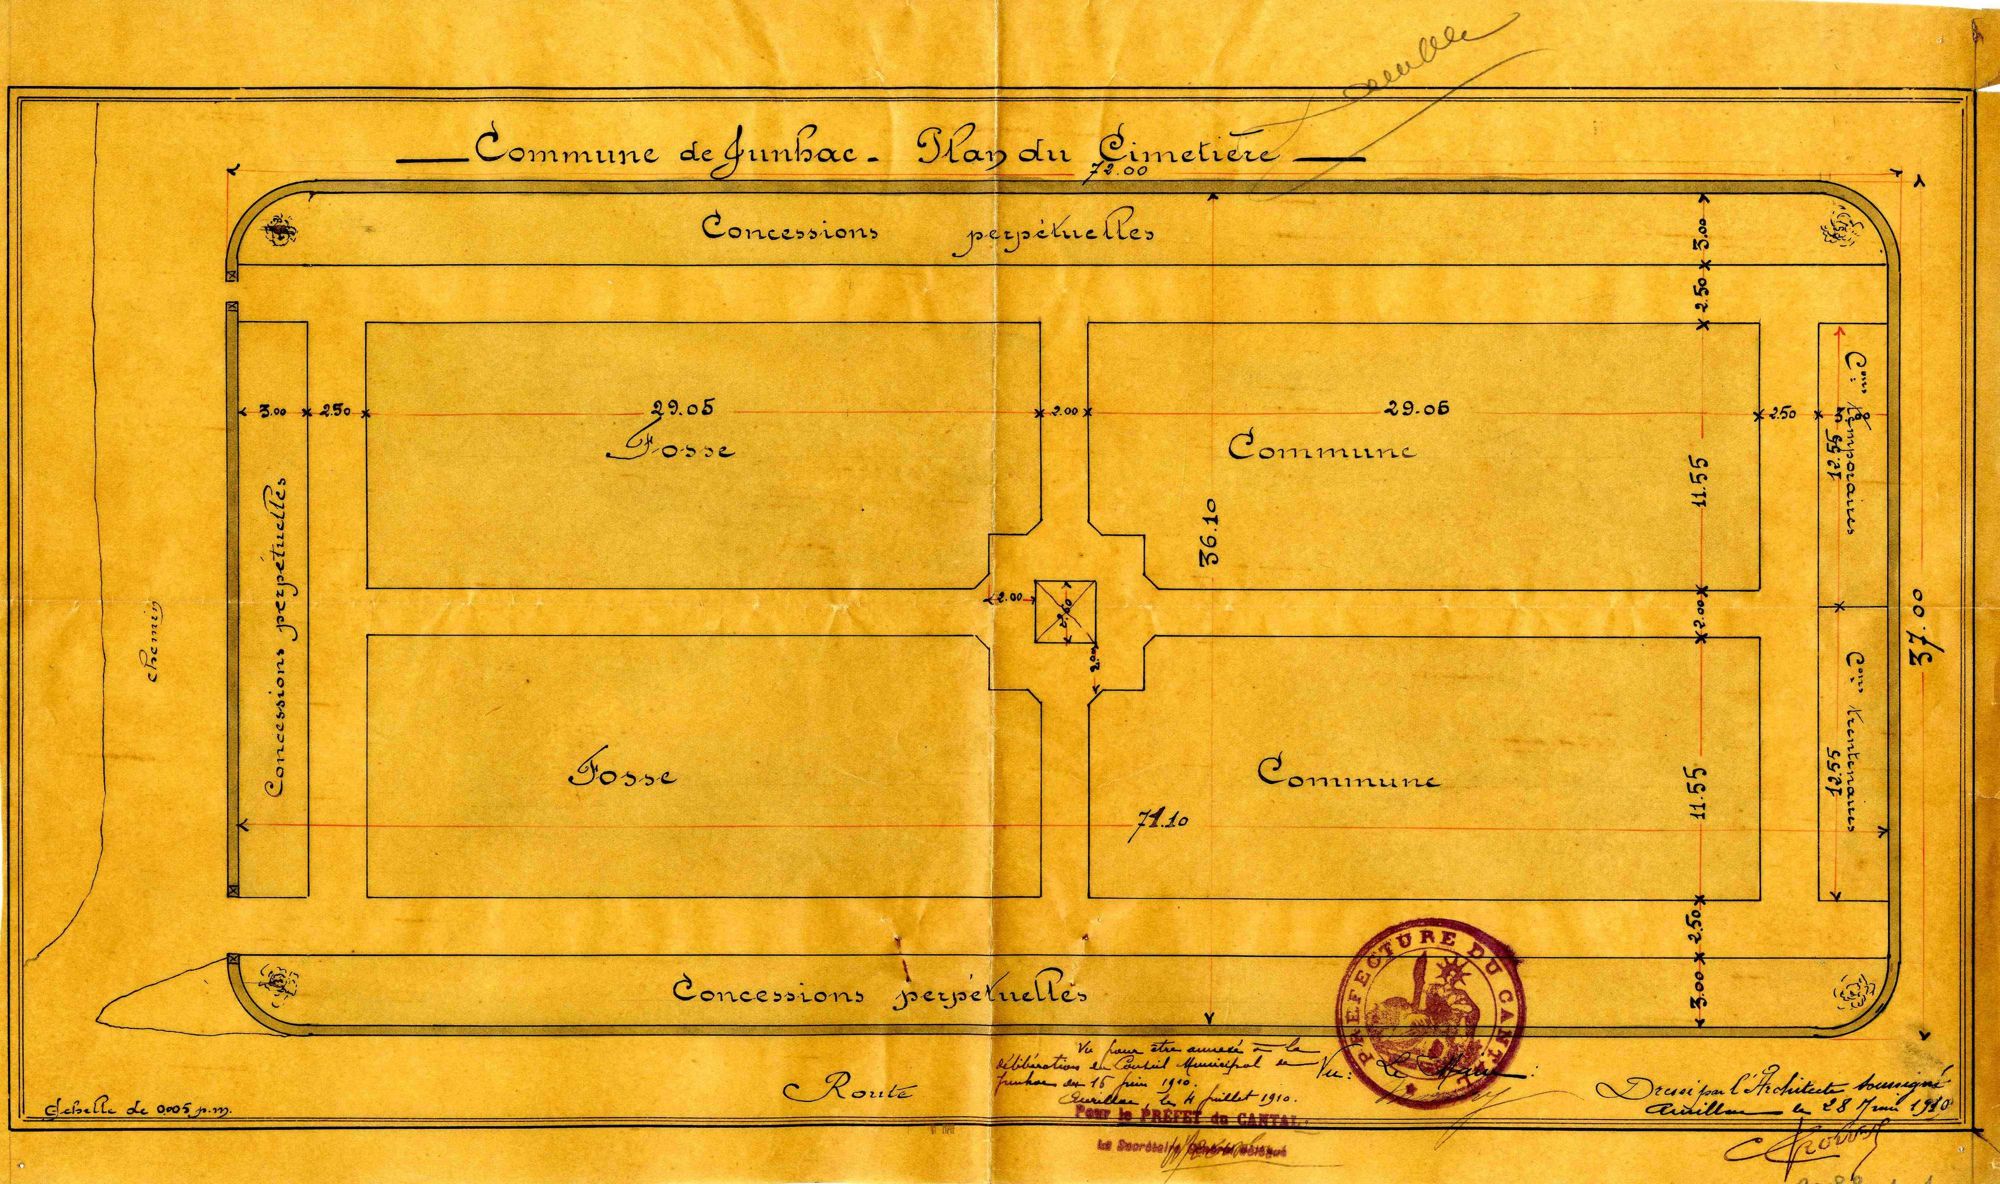 Commune de Junhac - Plan du Cimetière
72.00
Concessions perpétuelles
3.00
2.50
3.00
2.50
29.05
2.00
29.05
2.50
3.
Fosse
Commune
11.55
36.10
Cons temporaires
12.55
Concessions perpétuelles
chemin
2.00
2.60
2.00
2.00
37.00
Cons trentenaires
12.55
Fosse
Commune
11.55
71.10
2.50
3.00
Concessions perpétuelles
PREFECTURE DU CANTAL
Route
Echelle de 0.005 p.m.
Vu pour être annexé à la
délibération du Conseil Municipal de
Junhac du 15 juin 1910.
Aurillac, le 4 juillet 1910.
Pour le PRÉFET du CANTAL:
Le Secrétaire Général délégué
Vu: Le Maire:
Dressé par l'Architecte soussigné
Aurillac le 28 Mai 1910